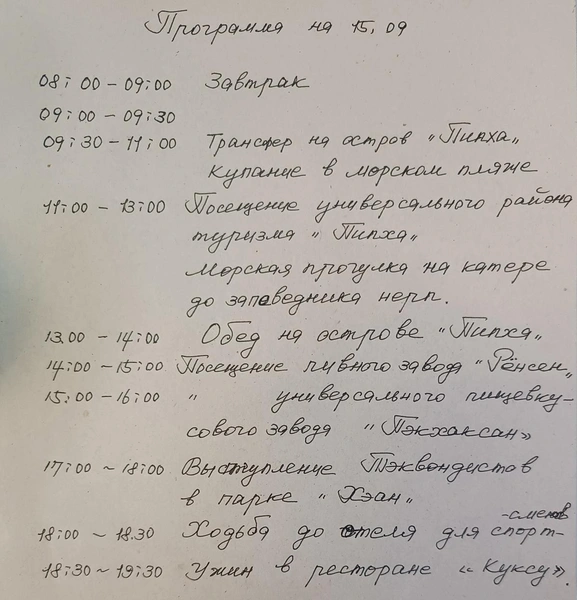 Программа на 15.09
08:00 – 09:00 Завтрак
09:00 – 09:30
09:30 – 11:00 Трансфер на остров "Пипха"
купание в морском пляже
11:00 – 13:00 Посещение универсального района
туризма "Пипха"
Морская прогулка на катере
до заповедника нерп.
13.00 – 14:00 Обед на острове "Пипха"
14:00 – 15:00 Посещение пивного завода "Рёнсен"
15:00 – 16:00 " универсального пищевку-
сового завода "Пэкхаксан»
17:00 ~ 18:00 Выступление Тэквондистов
в парке "Хэан"
18:00 – 18.30 Ходьба до отеля для спорт-
-сменов
18:30 ~ 19:30 Ужин в ресторане «Куксу».